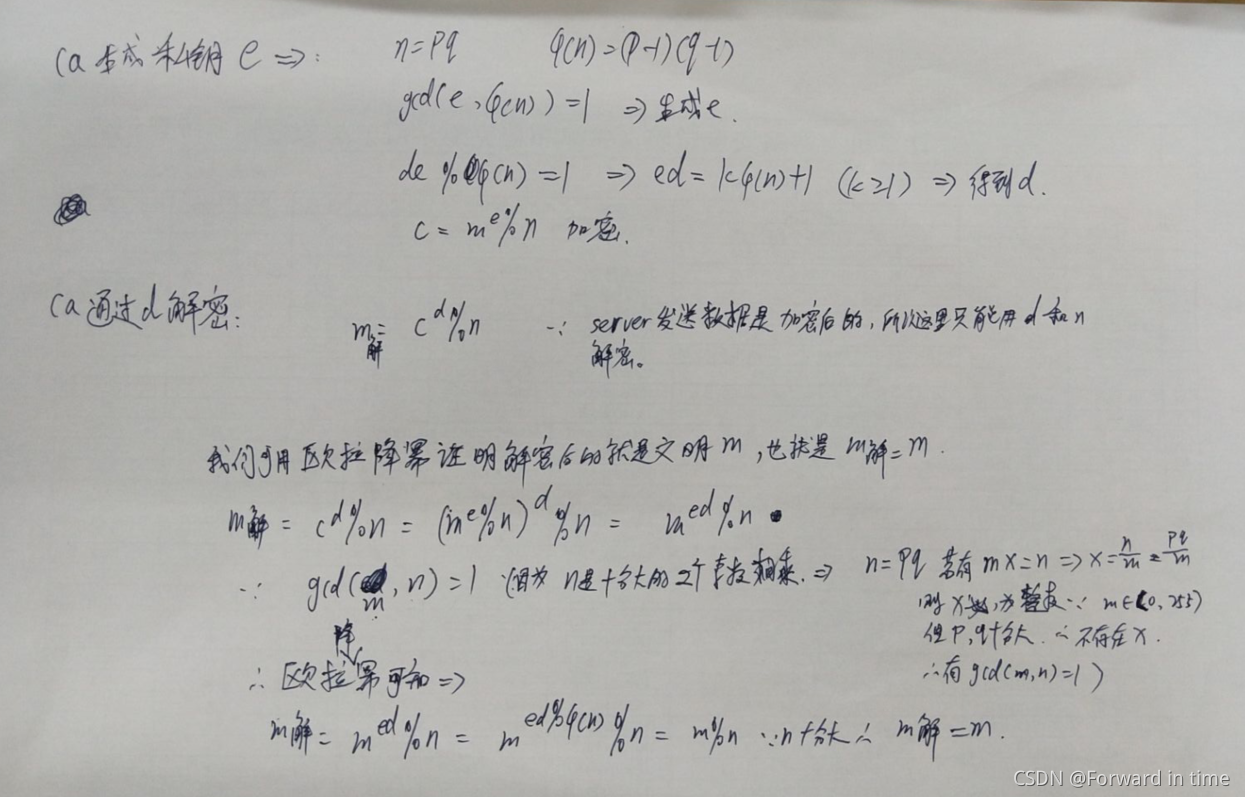 Ca 生成私钥 e => : n=pq φ(n)=(p-1)(q-1)
gcd(e,φ(n))=1 => 生成e.
de %φ(n)=1 => ed=kφ(n)+1 (k≥1) => 得到d.
c = m^e%n 加密.
Ca 通过d解密: m解= c^d%n ∵ server发送数据是加密后的,所以这里只能用d和n
解密。
我们可用欧拉降幂证明解密后的就是文明m,也就是m解=m.
m解 = c^d%n = (m^e%n)^d%n = m^ed%n
∵ gcd(m,n)=1 (因为n是十分大的2个素数相乘. => n=pq 若有 mx=n => x=n/m=pq/m
则x 为整数∵ m∈(0,255)
但p,q十分大. ∴不存在x.
∴有gcd(m,n)=1)
∴ 欧拉降幂可知 =>
m解= m^ed%n = m^ed%φ(n)%n = m%n ∵n十分大∴ m解=m.
CSDN @Forward in time